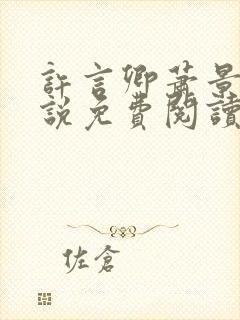 許言卿蕭景
說免費閱讀
佐倉